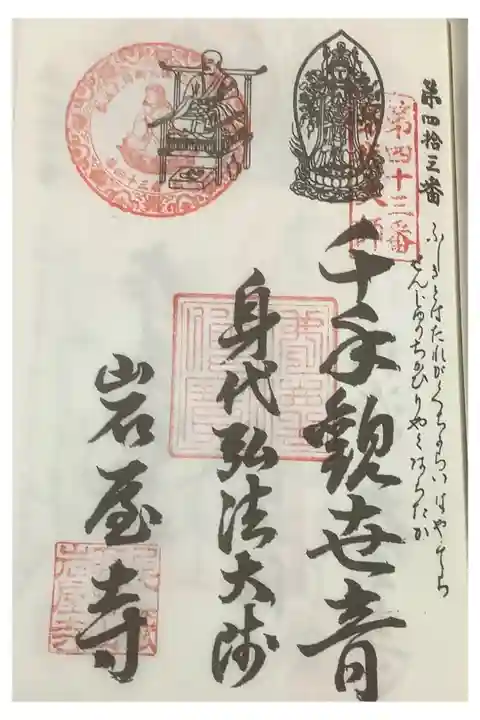 第四拾三番
ふしぎとはたれがくちよりいはやでら
せんじゆのちかひりやくあらたか
第四十三番
大師
千手観世音
身代弘法大師
岩屋寺